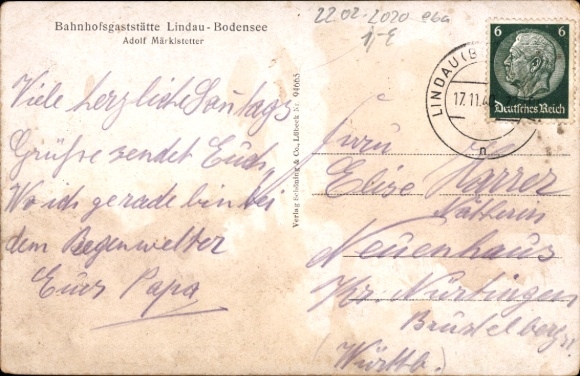 Bahnhofsgaststätte Lindau-Bodensee
Adolf Märklstetter
22.02.2020 eba
1,-E
Viele herzliche Sontags
Grüsse sendet Euch,
Wo ich gerade bin bei
dem Regenwetter
Euer Papa
Verlag Schöning & Co., Lübeck Nr. 94665
6 6
Deutsches Reich
LINDAU (B
17.11.4
n
Frau
Elise
Näherin
Neuenhaus
Kr. Nürtingen
(Württb.)